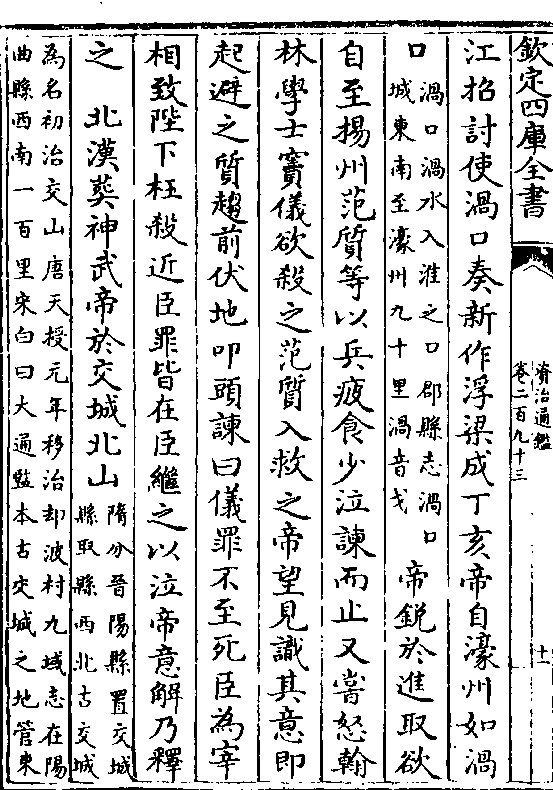 欽定四庫全書
資治通鑑
卷二百九十三
十一
江招討使渦口奏新作浮梁成丁亥帝自濠州如渦
口
渦口渦水入淮之口郡縣志渦口
城東南至濠州九十里渦音戈
帝鋭於進取欲
自至揚州范質等以兵疲食少泣諫而止又嘗怒翰
林學士竇儀欲殺之范質入救之帝望見識其意即
起避之質趨前伏地叩頭諫曰儀罪不至死臣為宰
相致陛下枉殺近臣罪皆在臣繼之以泣帝意解乃釋
之　北漢葬神武帝於交城北山
隋分晉陽縣置交城
縣取縣西北古交城
為名初治交山唐天授元年移治却波村九域志在陽
曲縣西南一百里宋白曰大通監本古交城之地管東